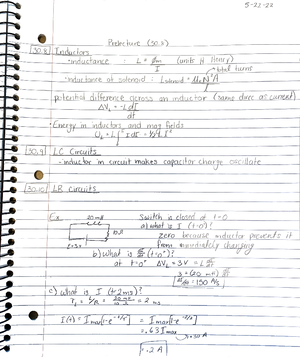 5-21-22
Prelecture (30.8)
30.8 Inductors
• inductance : L = Φm/I (units H Henry)
total turns
• inductance of solenoid : Lsolenoid = μ₀N²A
potential difference across an inductor (same direc as current)
ΔVL = -L dI/dt
• Energy in inductors and mag fields
UL = L∫ I dI = ½ L I²
30.9 LC Circuits
- inductor in circuit makes capacitor charge oscillate
30.10 LR circuits
Ex. Switch is closed at t=0
20 mH
a) what is I (t=0)?
10Ω
zero because inductor prevents it
from immediately changing
ε=3V
b) what is dI/dt (t=0⁺)?
at t=0⁺ ΔVL = 3V = L dI/dt
3 = (20 mH) dI/dt
dI/dt = 150 A/s
c) what is I (t=2ms)?
τ = L/R = 20 mH/10 Ω = 2 ms
I(t) = Imax[1-e^-t/τ] = Imax[1-e^-2/2]
= .63 Imax
= .2 A